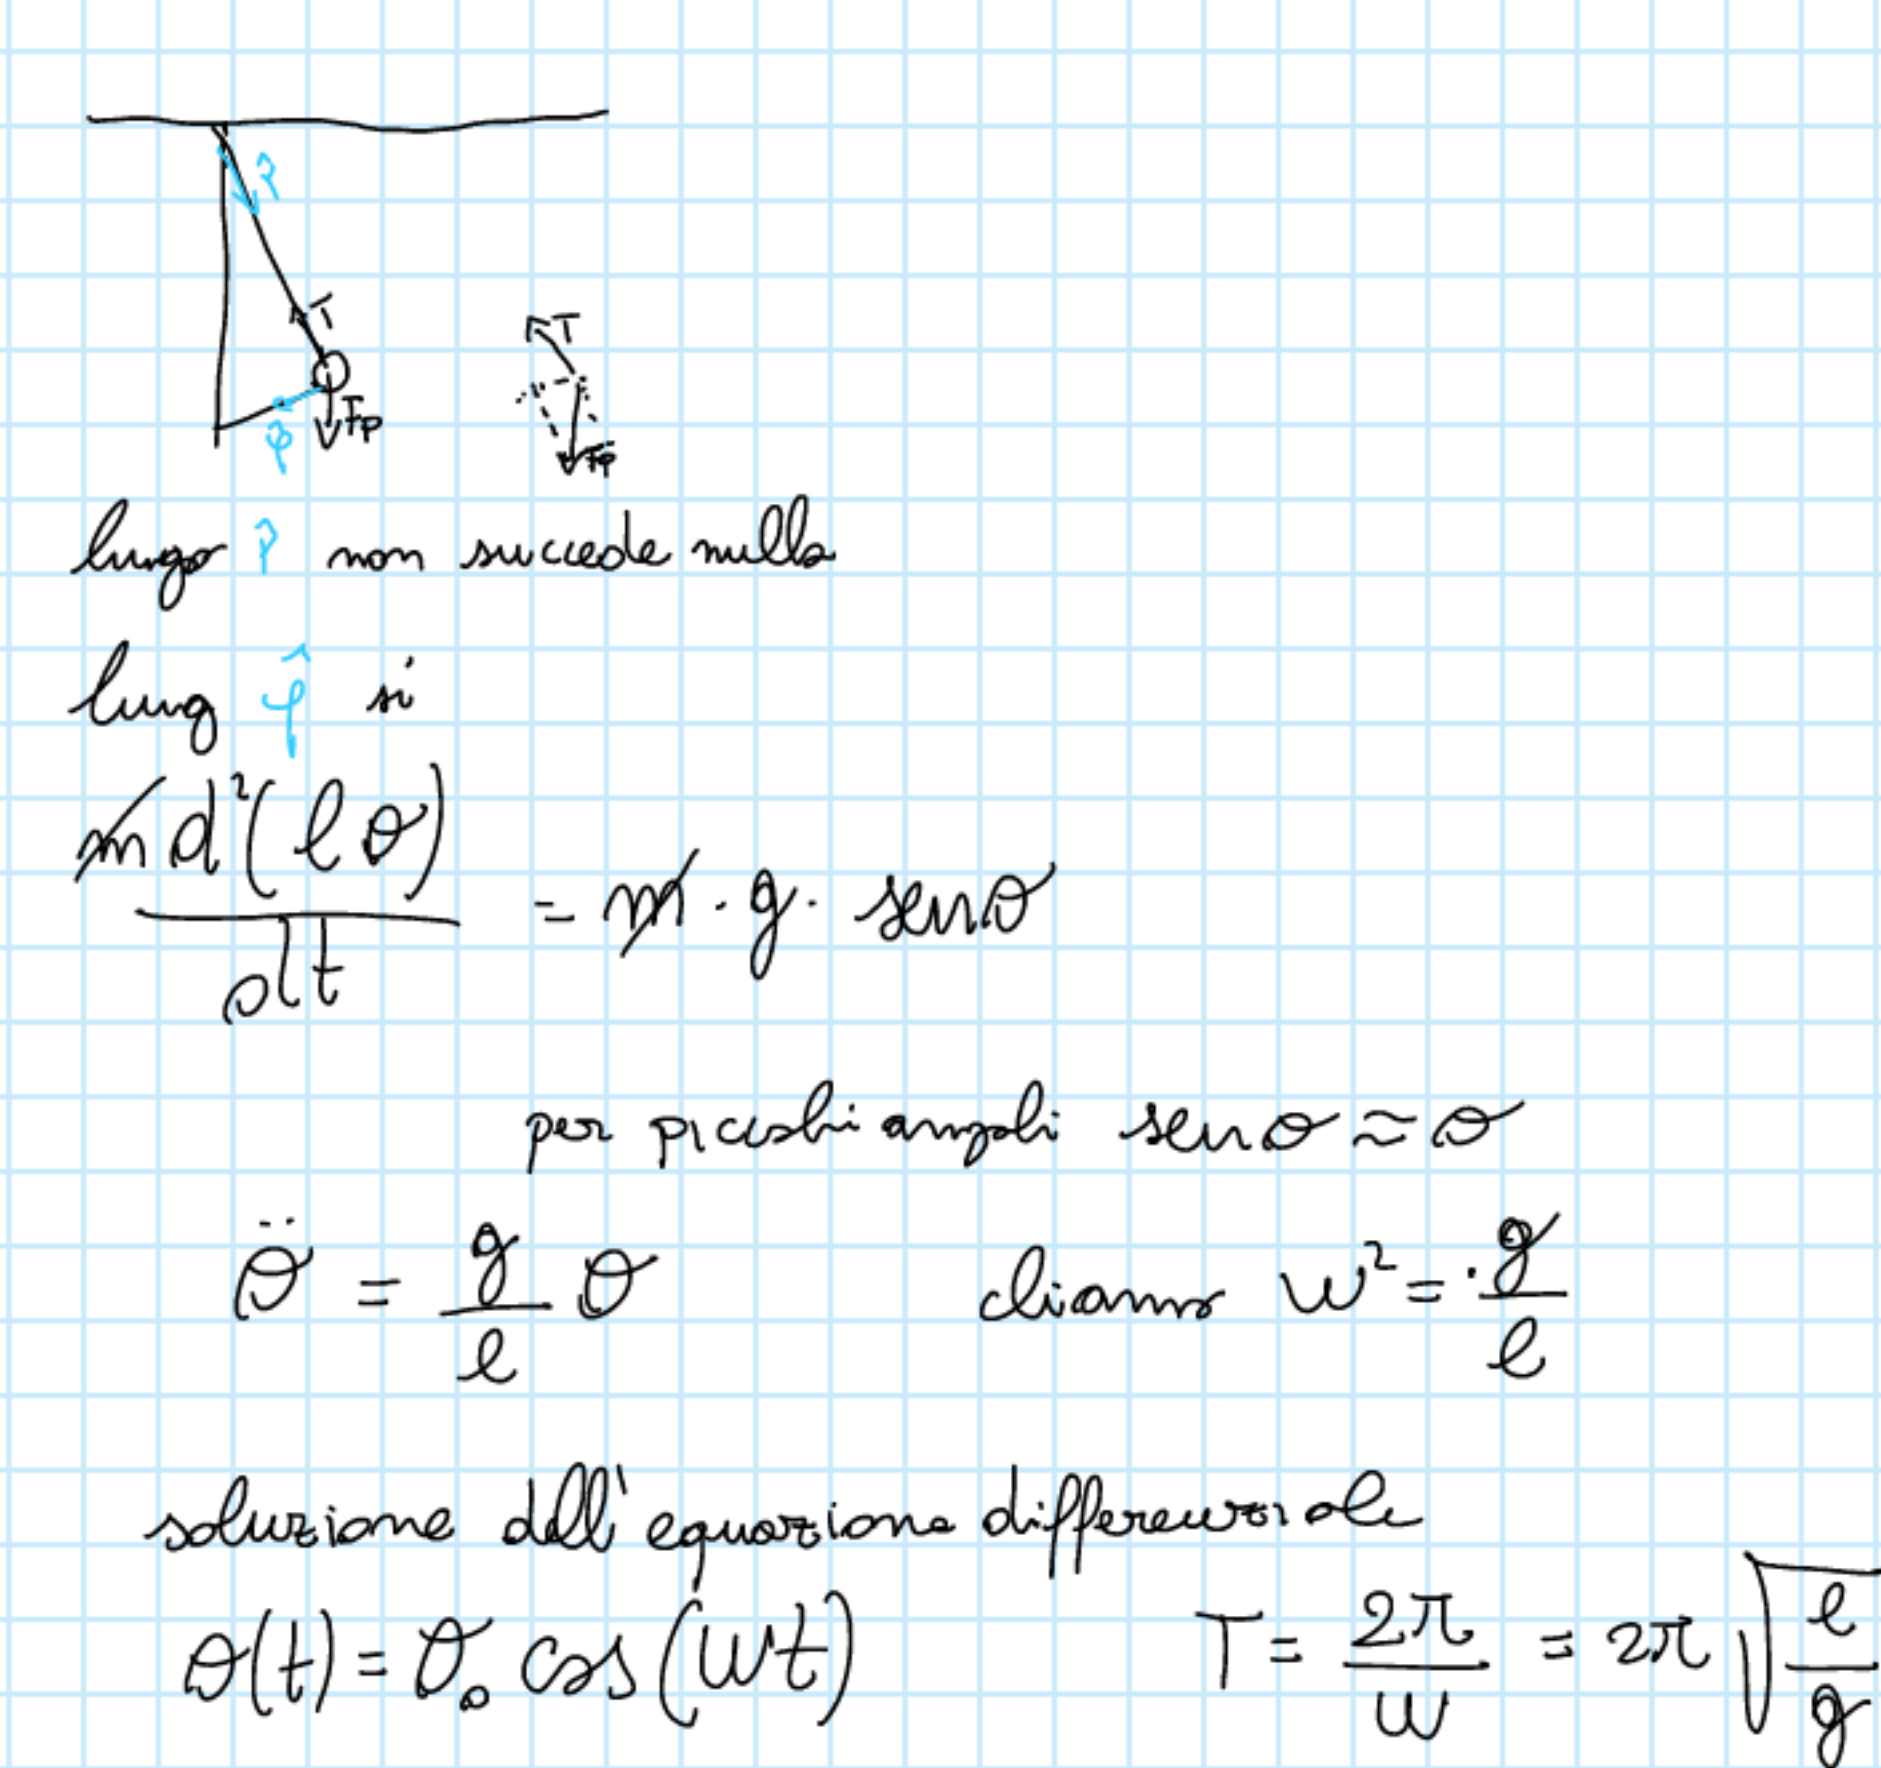 r̂
T
T
Fp
φ̂
Fp
lungo r̂ non succede nulla
lung φ̂ si
m d²(lθ) / dt = m · g · senθ
per piccoli angoli senθ ≈ θ
θ̈ = g/l θ
cliamo w² = g/l
soluzione dell'equazione differenziale
θ(t) = θ₀ cos(wt)
T = 2π/w = 2π √(l/g)